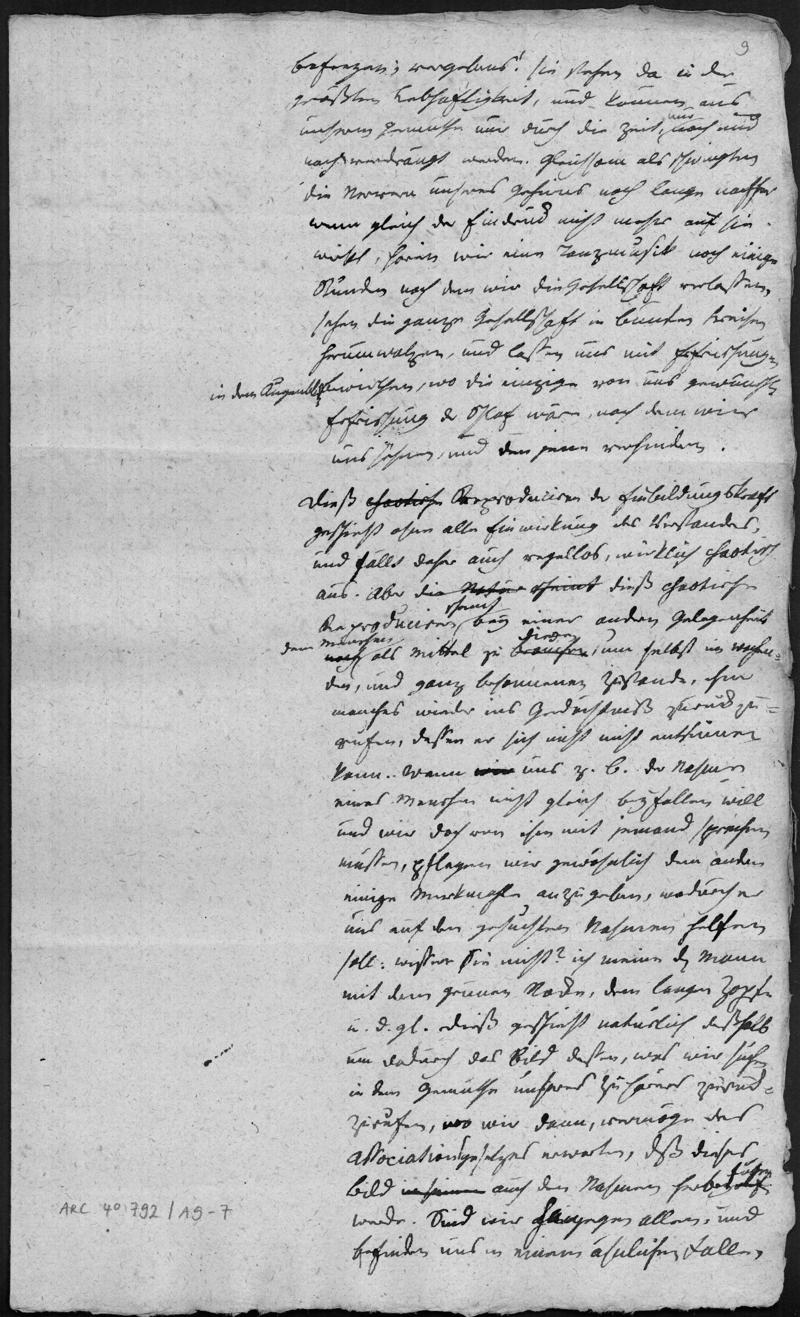 9
vergebens! sie stehen da in der
größten Lebhaftigkeit, und können aus
unserm Gemüthe nur durch die Zeit, nur nach und
nach verdrängt werden. Gleichsam als schwingten
die Nerven unseres Gehirns noch lange nachher
wenn gleich der Eindruck nicht mehr auf sie
wirkt, hören wir eine Tanzmusik noch einige
Stunden nach dem wir die Gesellschaft verlassen,
sehen die ganze Gesellschaft in bunten Kreisen
herumwalzen, und lassen uns mit Erfrischungen
in dem Augenblick bewirthen, wo die einzige von uns gewünschte
Erfrischung der Schlaf wäre, nach dem wir
uns sehnen, und den jene verhindern.
Dieß chaotische Reproduciren der Einbildungskraft
geschieht ohne alle Einwirkung des Verstandes,
und fällt daher auch regellos, wirklich chaotisch
aus. Aber die Natur scheint dieß chaotische
Reproduciren scheint bey einer andern Gelegenheit
dem Menschen noch als Mittel zu dienen, um selbst im wachen=
den, und ganz besonnenen Zustande, ihm
manches wieder ins Gedächtniß zurückzu=
rufen, dessen er sich nicht entsinnen
kann. Wenn wir uns z. B. der Nahmen
eines Menschen nicht gleich beyfallen will
und wir doch von ihm mit jemand sprechen
müssen, pflegen wir gewöhnlich dem andern
einige Merkmahle anzugeben, wodurch er
uns auf den gesuchten Nahmen helfen
soll: wissen Sie nicht? ich meine den Mann
mit dem grünen Rocke, dem langen Zopfe
u. d. gl. Dieß geschieht natürlich deßhalb
um dadurch das Bild dessen, was wir suchen
in dem Gemüthe unseres Zuhörers zurück=
zurufen, wo wir dann, vermöge des
Associationsgesetzes erwarten, daß dieses
Bild in seinem auch den Nahmen herbeyführen
werde. Sind wir hingegen allein, und
befinden uns in einem ähnlichen Falle,
ARC 4° 792 / A9-7